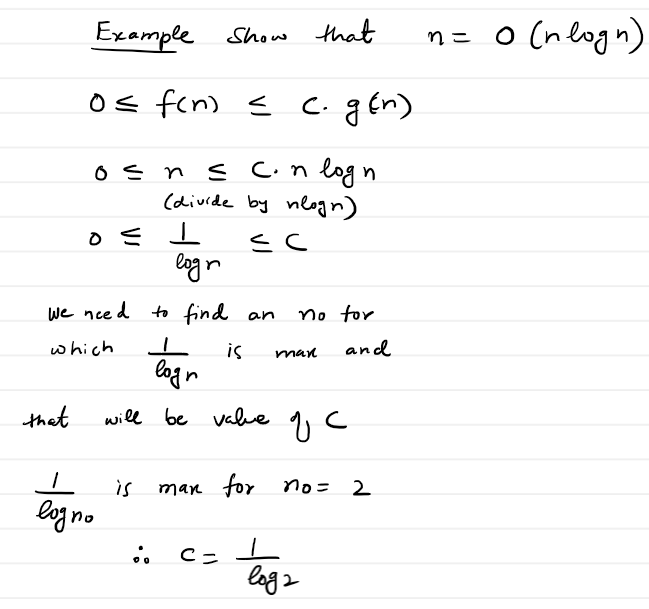 Example Show that n = O (n log n)
0 ≤ f(n) ≤ C. g(n)
0 ≤ n ≤ C. n log n
(divide by nlogn)
0 ≤ 1/log n ≤ C
We need to find an n₀ for
which 1/log n is max and
that will be value of C
1/log n₀ is max for n₀ = 2
∴ C = 1/log 2